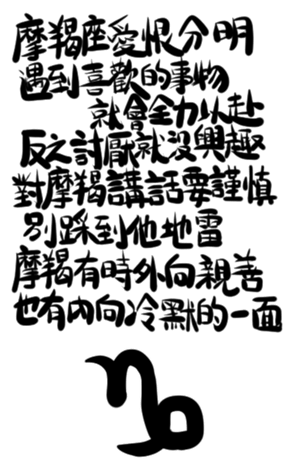 摩羯座愛恨分明
遇到喜歡的事物
就會全力以赴
反之討厭就沒興趣
對摩羯講話要謹慎
別踩到他地雷
摩羯有時外向親善
也有內向冷默的一面